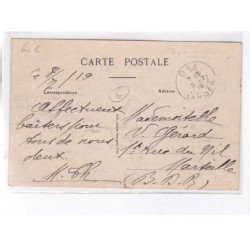 CARTE POSTALE
Correspondance
Adresse
DAX
LANDES
Le 8/7/19
Affectueux
baisers pour
tous de nous
deux.
M. Th
Mademoiselle
V. Gérard
1 Rue du
Marseille
(B. D. R)